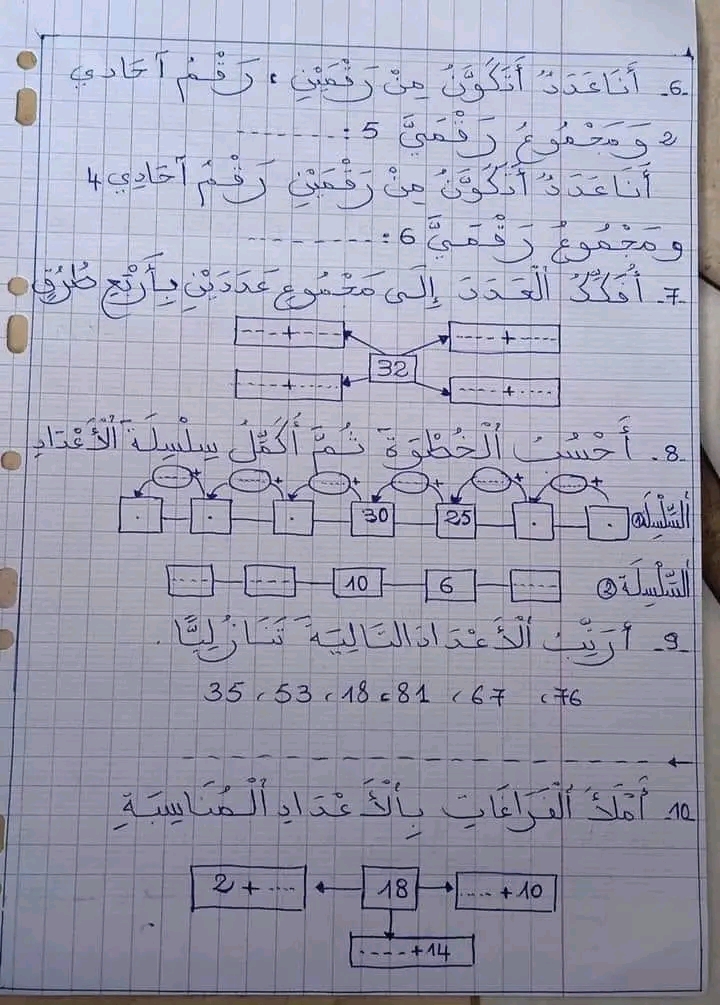 6. أَنَا عَدَدٌ أَتَكَوَّنُ مِنْ رَقْمَيْنِ ، رَقْمُ آحَادِي
2 وَ مَجْمُوعُ رَقْمَيَّ 5 : --------
أَنَا عَدَدٌ أَتَكَوَّنُ مِنْ رَقْمَيْنِ رَقْمُ آحَادِي 4
و مَجْمُوعُ رَقْمَيَّ 6 : --------
7. أُفَكِّكُ الْعَدَدَ إِلَى مَجْمُوعِ عَدَدَيْنِ بِأَرْبَعِ طُرُقٍ
----+---- ----+----
32
----+---- ----+----
8. أَحْسُبُ الْخُطْوَةَ ثُمَّ أُكَمِّلُ سِلْسِلَةَ الْأَعْدَادِ
+---- +---- +---- +---- +---- +----
السِّلْسِلَة ① . . 25 30 . . .
السِّلْسِلَة ② ---- 6 10 ---- ----
9. أُرَتِّبُ الْأَعْدَادَ التَالِيَةَ تَنَازُلِيًّا .
76 ، 67 ، 81 ، 18 ، 53 ، 35
← --------------------
10. أَمْلَأُ الْفَرَاغَاتِ بِالْأَعْدَادِ الْمُنَاسِبَةِ
2 + ---- ← 18 → ---- + 10
---- +14